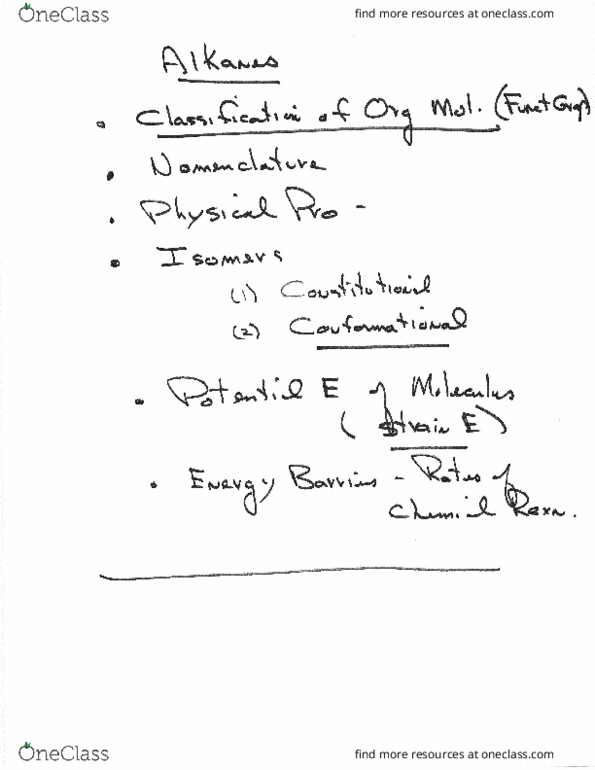 OneClass
find more resources at oneclass.com
Alkanes
• Classification of Org Mol. (Funct Grp)
• Nomenclature
• Physical Pro -
• Isomers
(1) Constitutional
(2) Conformational
• Potential E of Molecules
(Strain E)
• Energy Barriers - Rates of
Chemical Rexn.
OneClass
find more resources at oneclass.com